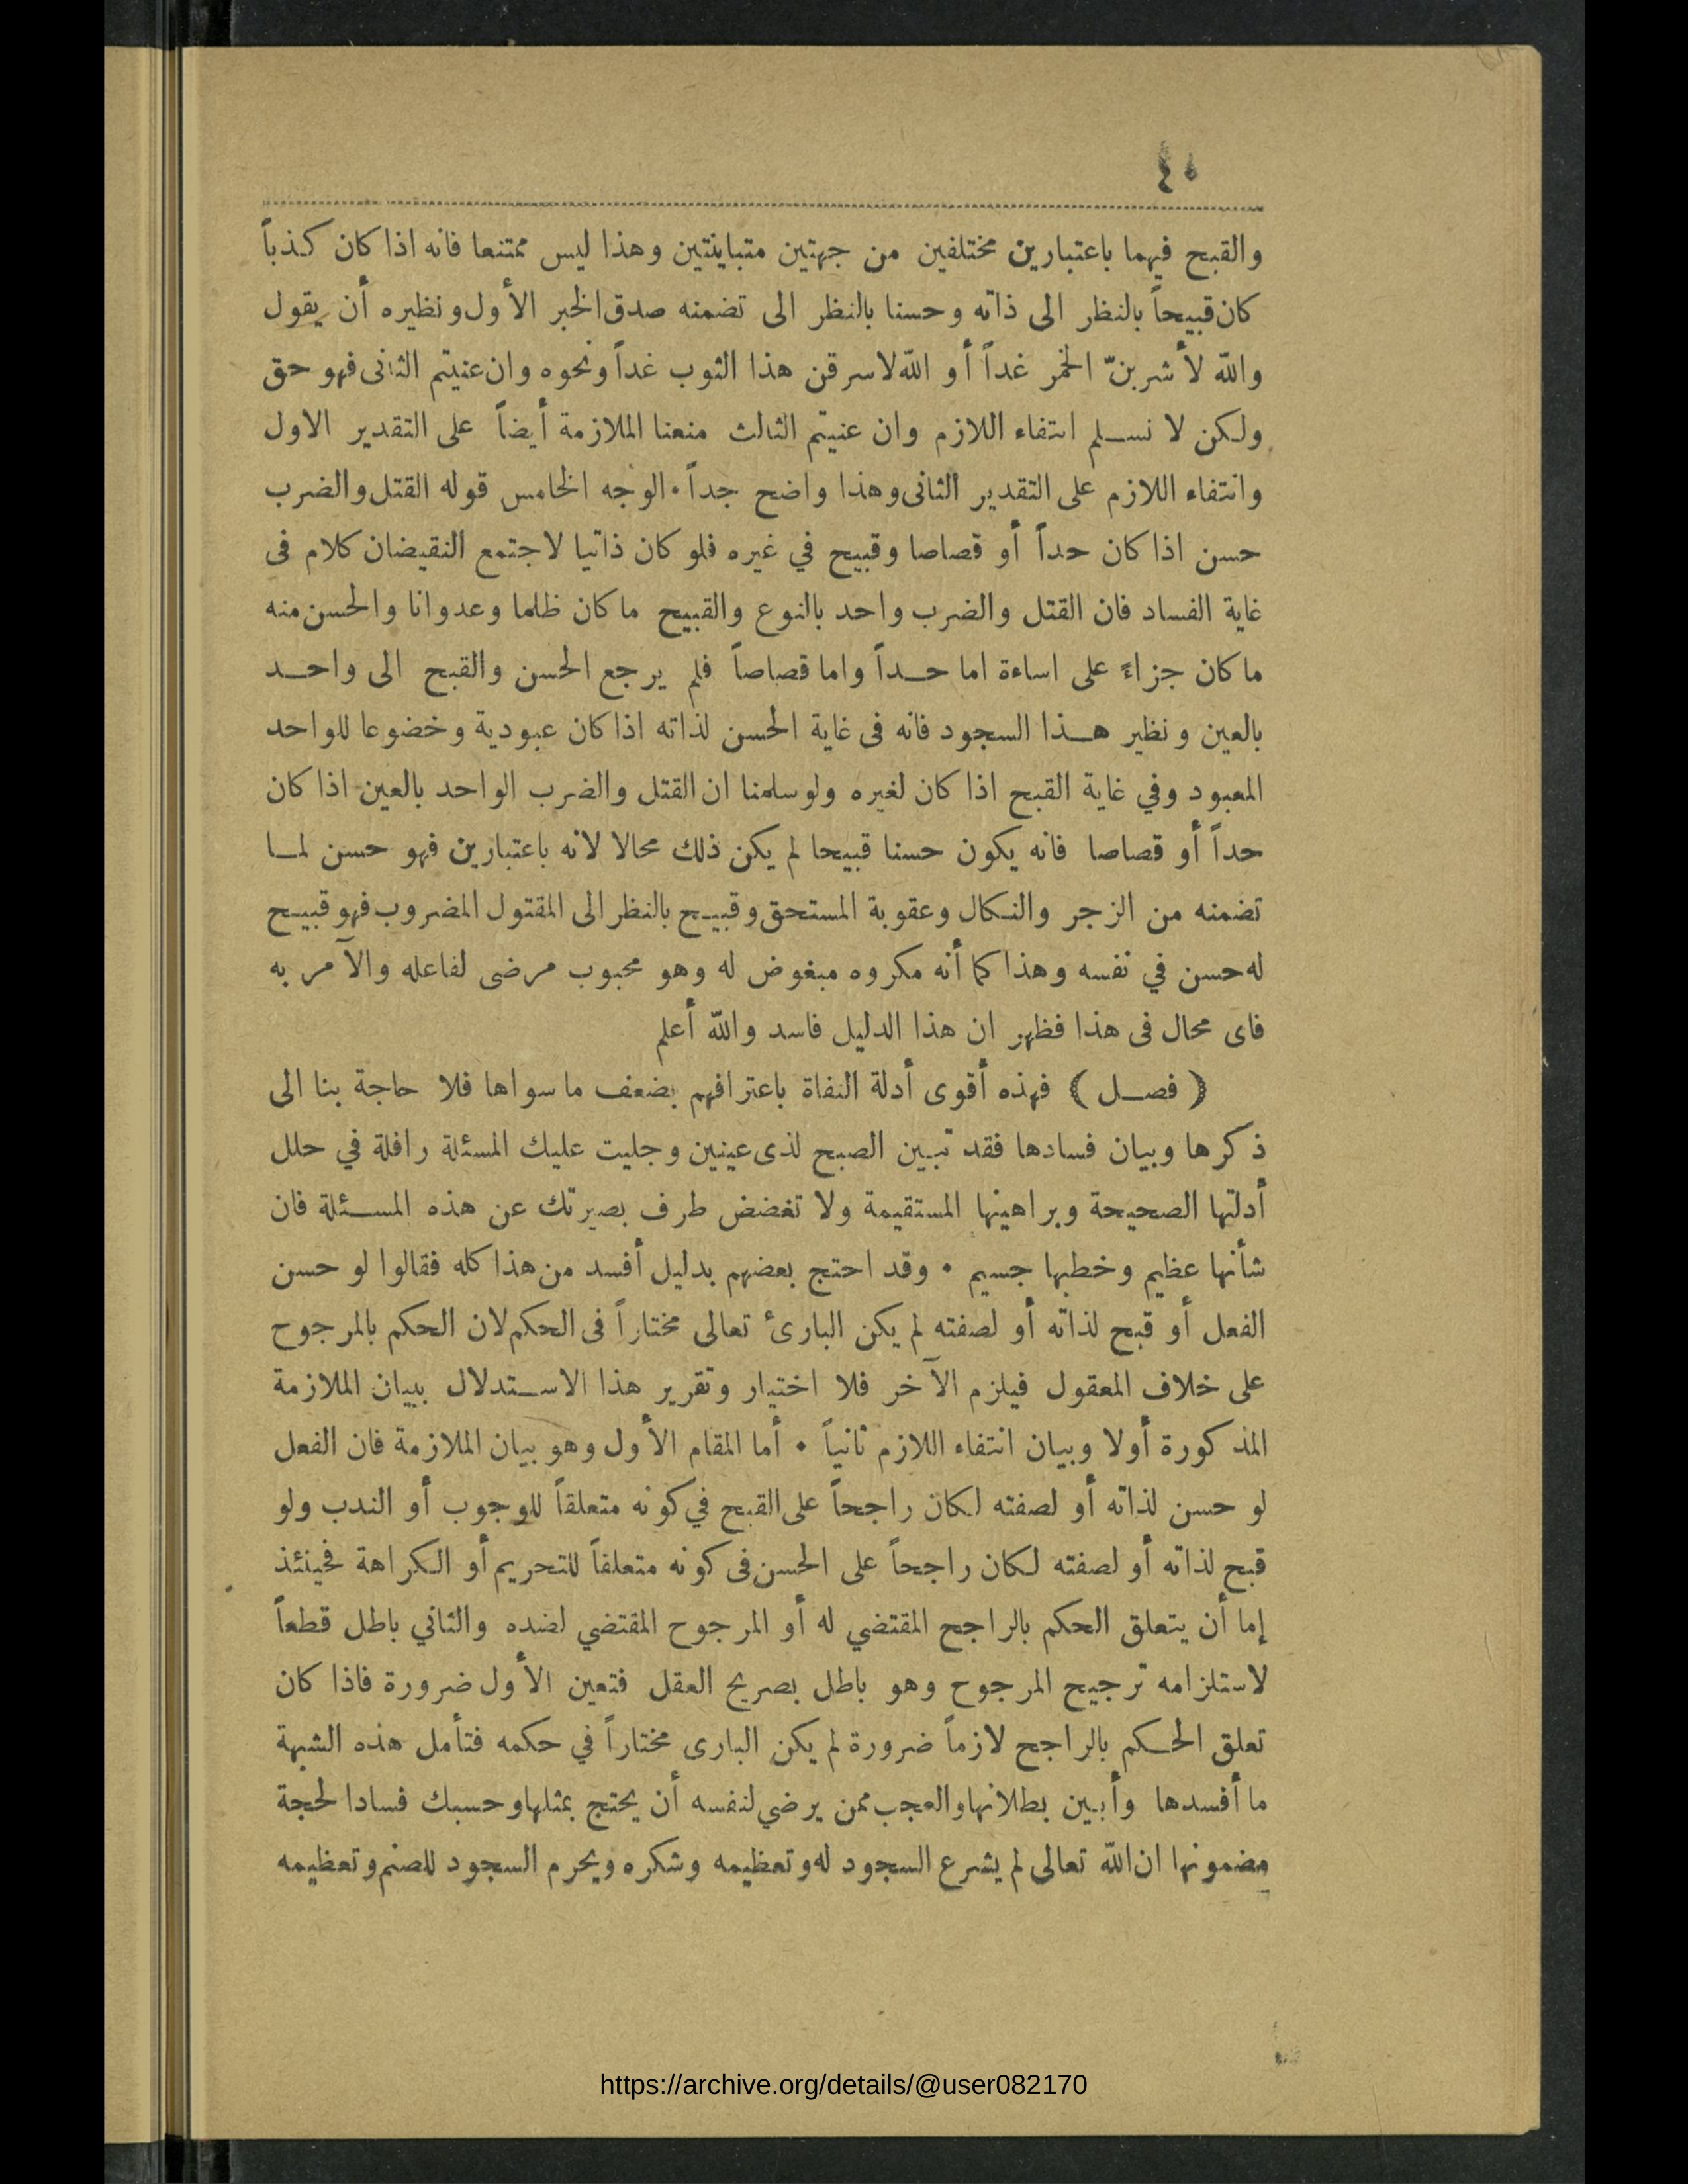 ٤٠
والقبح فيهما باعتبارين مختلفين من جهتين متباينتين وهذا ليس ممتنعا فانه اذا كان كذباً
كان قبيحاً بالنظر الى ذاته وحسنا بالنظر الى تضمنه صدق الخبر الأول ونظيره أن يقول
والله لأشربنّ الخمر غداً أو الله لاسرقن هذا الثوب غداً ونحوه وان عنيتم الثانى فهو حق
ولكن لا نسلم انتفاء اللازم وان عنيتم الثالث منعنا الملازمة أيضاً على التقدير الاول
وانتفاء اللازم على التقدير الثانى وهذا واضح جداً • الوجه الخامس قوله القتل والضرب
حسن اذا كان حداً أو قصاصا وقبيح في غيره فلو كان ذاتيا لاجتمع النقيضان كلام فى
غاية الفساد فان القتل والضرب واحد بالنوع والقبيح ما كان ظلما وعدوانا والحسن منه
ما كان جزاءً على اساءة اما حداً واما قصاصاً فلم يرجع الحسن والقبح الى واحد
بالعين ونظير هذا السجود فانه فى غاية الحسن لذاته اذا كان عبودية وخضوعا للواحد
المعبود وفي غاية القبح اذا كان لغيره ولو سلمنا ان القتل والضرب الواحد بالعين اذا كان
حداً أو قصاصا فانه يكون حسنا قبيحا لم يكن ذلك محالا لانه باعتبارين فهو حسن لما
تضمنه من الزجر والنكال وعقوبة المستحق وقبيح بالنظر الى المقتول المضروب فهو قبيح
له حسن في نفسه وهذا كما أنه مكروه مبغوض له وهو محبوب مرضى لفاعله والآمر به
فاى محال فى هذا فظهر ان هذا الدليل فاسد والله أعلم
( فصل ) فهذه أقوى أدلة النفاة باعترافهم بضعف ما سواها فلا حاجة بنا الى
ذكرها وبيان فسادها فقد تبين الصبح لذى عينين وجليت عليك المسئلة رافلة في حلل
أدلتها الصحيحة وبراهينها المستقيمة ولا تغضض طرف بصيرتك عن هذه المسئلة فان
شأنها عظيم وخطبها جسيم • وقد احتج بعضهم بدليل أفسد من هذا كله فقالوا لو حسن
الفعل أو قبح لذاته أو لصفته لم يكن البارئ تعالى مختاراً فى الحكم لان الحكم بالمرجوح
على خلاف المعقول فيلزم الآخر فلا اختيار وتقرير هذا الاستدلال ببيان الملازمة
المذكورة أولا وبيان انتفاء اللازم ثانياً • أما المقام الأول وهو بيان الملازمة فان الفعل
لو حسن لذاته أو لصفته لكان راجحاً على القبح في كونه متعلقاً للوجوب أو الندب ولو
قبح لذاته أو لصفته لكان راجحاً على الحسن فى كونه متعلقاً للتحريم أو الكراهة فحينئذ
إما أن يتعلق الحكم بالراجح المقتضي له أو المرجوح المقتضي لضده والثاني باطل قطعاً
لاستلزامه ترجيح المرجوح وهو باطل بصريح العقل فتعين الأول ضرورة فاذا كان
تعلق الحكم بالراجح لازماً ضرورة لم يكن البارى مختاراً في حكمه فتأمل هذه الشبهة
ما أفسدها وأبين بطلانها والعجب ممن يرضي لنفسه أن يحتج بمثلها وحسبك فسادا لحجة
مضمونها ان الله تعالى لم يشرع السجود له وتعظيمه وشكره ويحرم السجود للصنم وتعظيمه
https://archive.org/details/@user082170